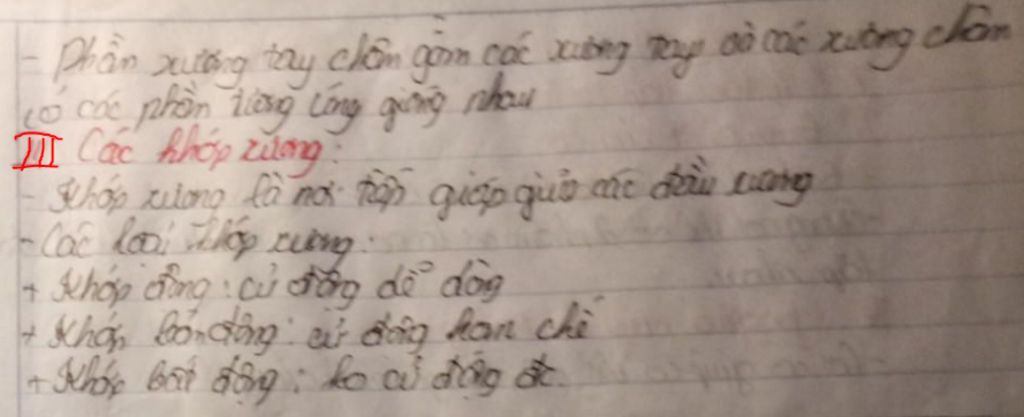 - Phần xương tay chân gồm các xương tay và các xương chân
có các phần tương ứng giống nhau
III Các khớp xương:
- Khớp xương là nơi tiếp giáp giữa các đầu xương
- Các loại khớp xương:
+ Khớp động: cử động dễ dàng
+ Khớp bán động: cử động hạn chế
+ Khớp bất động: ko cử động đc.